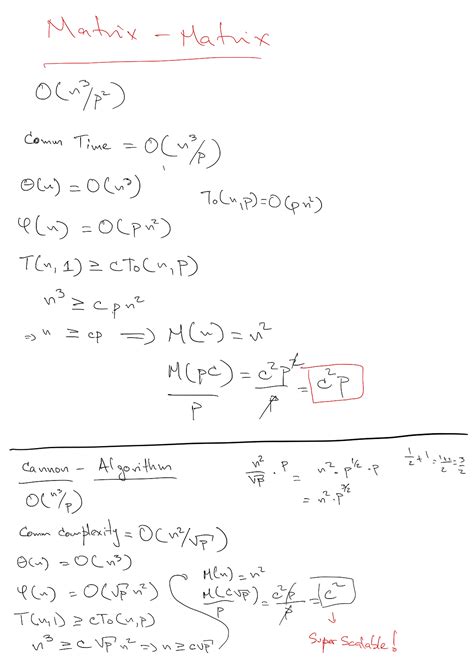 Matrix - Matrix
O(n³/p²)
Comm Time = O(n³/p)
Θ(n) = O(n³)
To(n,p)=O(pn²)
φ(n) = O(pn²)
T(n,1) ≥ cTo(n,p)
n³ ≥ cpn²
⇒ n ≥ cp ⇒ M(n) = n²
M(pc)/p = c²p²/p = c²p
Cannon - Algorithm
O(n³/p)
n²/√p · p = n² · p^½ · p
= n² · p^3/2
½ + 1 = 1+2/2 = 3/2
Comm Complexity = O(n²/√p)
Θ(n) = O(n³)
φ(n) = O(√p n²)
T(n,1) ≥ cTo(n,p)
n³ ≥ c√p n² ⇒ n ≥ c√p
M(n) = n²
M(c√p)/p = c²p/p = c²
Super Scalable!